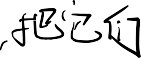 ，把它们